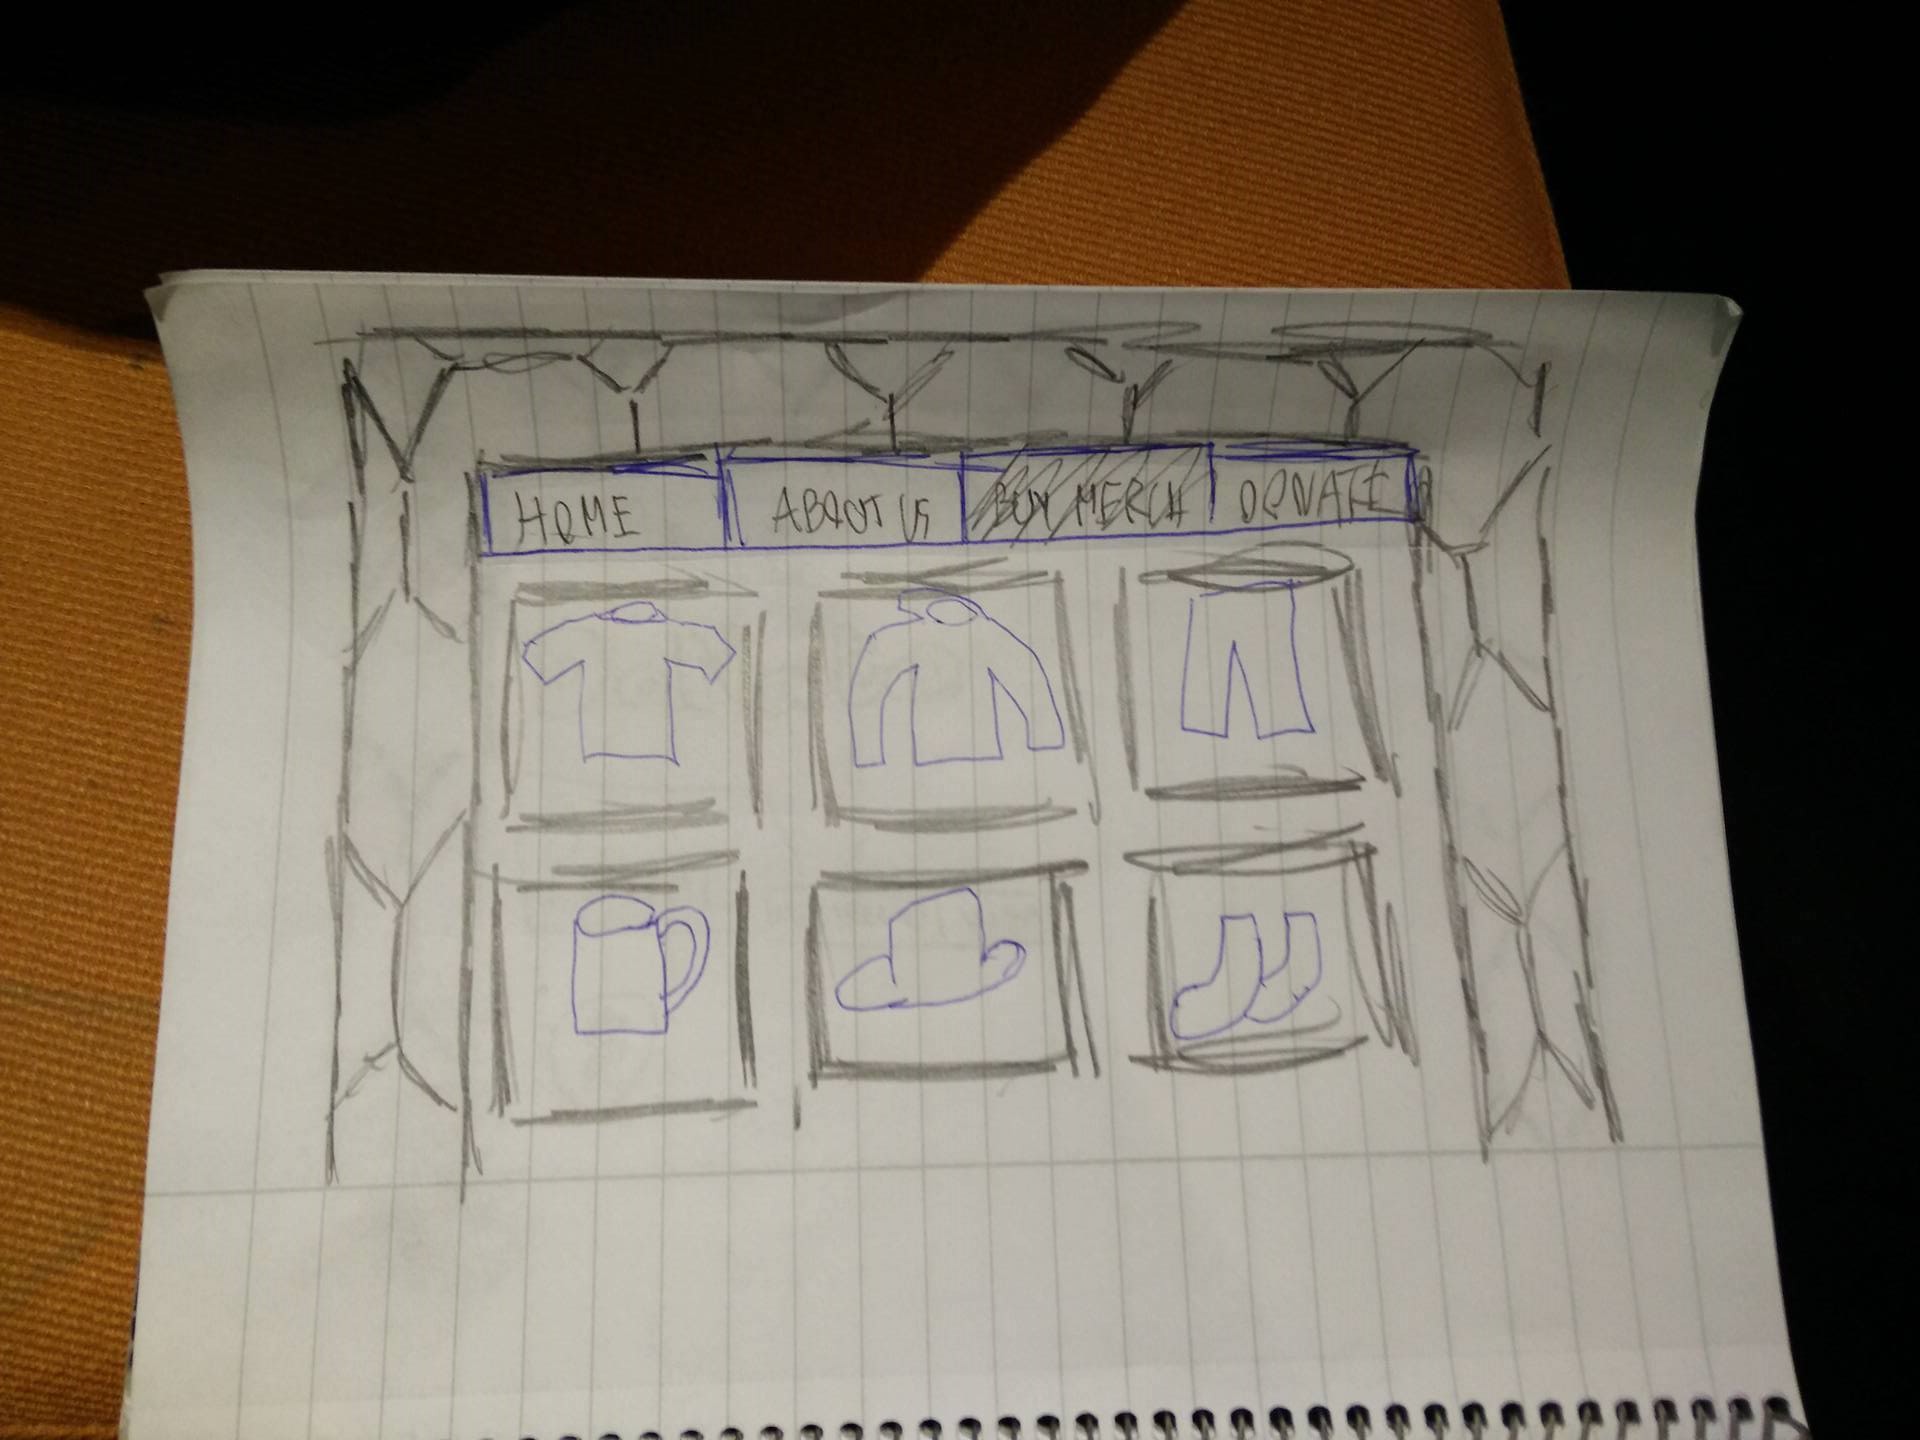 HOME ABOUT US BUY MERCH DONATE